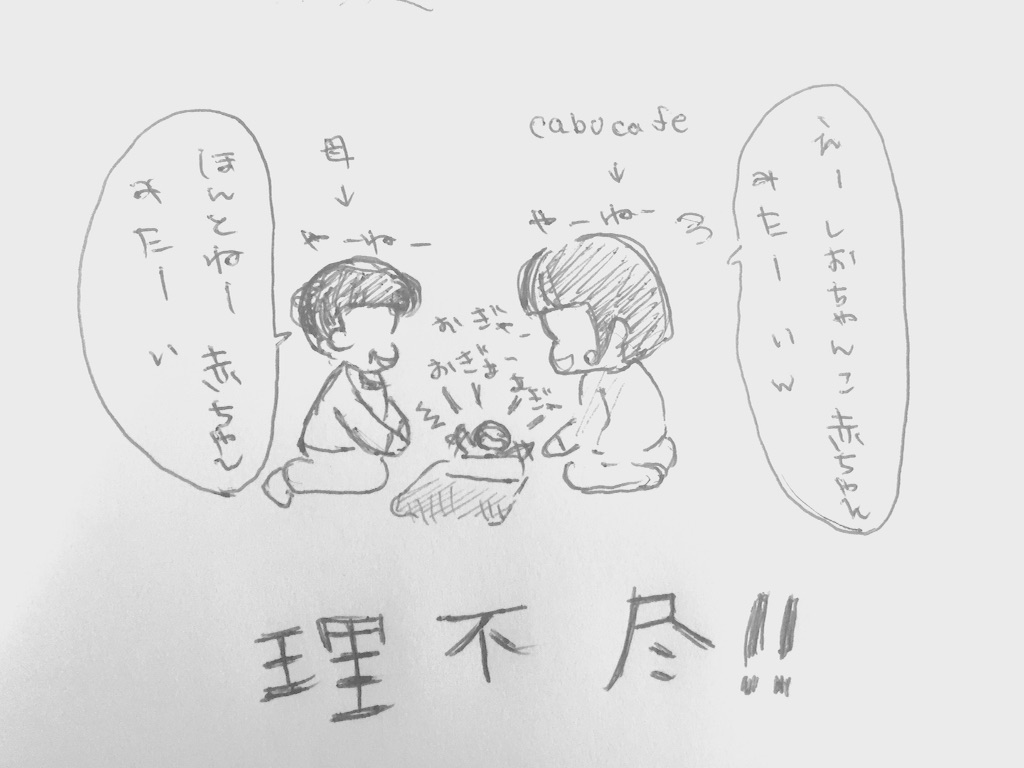 cabucafe
↓
えーしおちゃんこ赤ちゃん
みたーいん
やーねー
母
↓
やーねー
ほんとねー赤ちゃん
みたーい
おぎゃー
おぎゃー
おぎゃー
理不尽!!